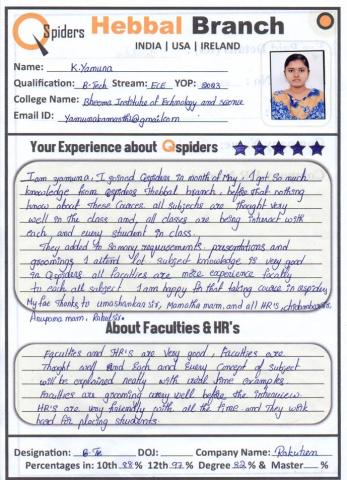 QSpiders Hebbal Branch
INDIA | USA | IRELAND
Name: K.Yamuna
Qualification: B-Tech Stream: ECE YOP: 2023
College Name: Bheema Institute of Technology and science
Email ID:
Your Experience about Qspiders
I am yamuna, I joined Qspiders in month of May. I got so much
knowledge from qspiders Hebbal branch, before that nothing
know about these Cources. all subjects are thought very
well in the class and, all classes are being interact with
each and every student in class.
They added so many requirements, presentations and
groomings I attend lot subject knowledge is very good
in Qspiders all faculties are more experience faculty
to each all subject. I am happy for that taking cource in qspiders
My fae Thanks to umashankar sir, Mamatha mam, and all HR's,
Anupama mam, Rahul sir.
About Faculties & HR's
Faculties and HR's are very good, Faculties are
Thought well And Each and Every concept of subject
will be explained neatly with real time examples.
Faculties are grooming very well before the interview
HR's are very friendly with all the time and They work
hard for placing students.
Designation: DOJ: Company Name: Rakuten
Percentages in: 10th 88 % 12th 97 % Degree 82 % & Master %